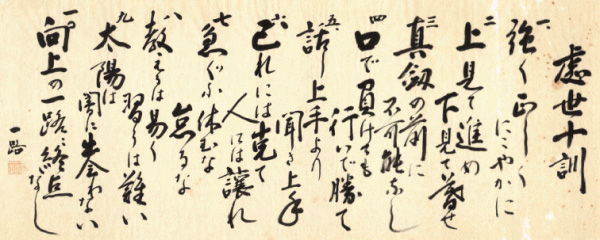 處世十訓
一、強く正しく
にこやかに
二、上見て進め
下見て暮せ
三、真剱の前に
不可能なし
四、口で負けても
行いで勝て
五、話し上手より
聞き上手
六、己れには克て
人には譲れ
七、急ぐが休むな
怠るな
八、教えは易く
習うは難い
九、太陽は
闇に出会わない
十、向上の一路に終点
なし
一路